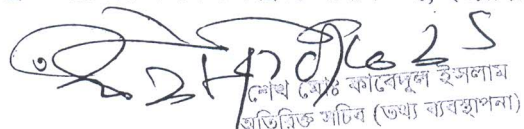 শেখ মোঃ কাবেদুল ইসলাম
অতিরিক্ত সচিব (তথ্য ব্যবস্থাপনা)